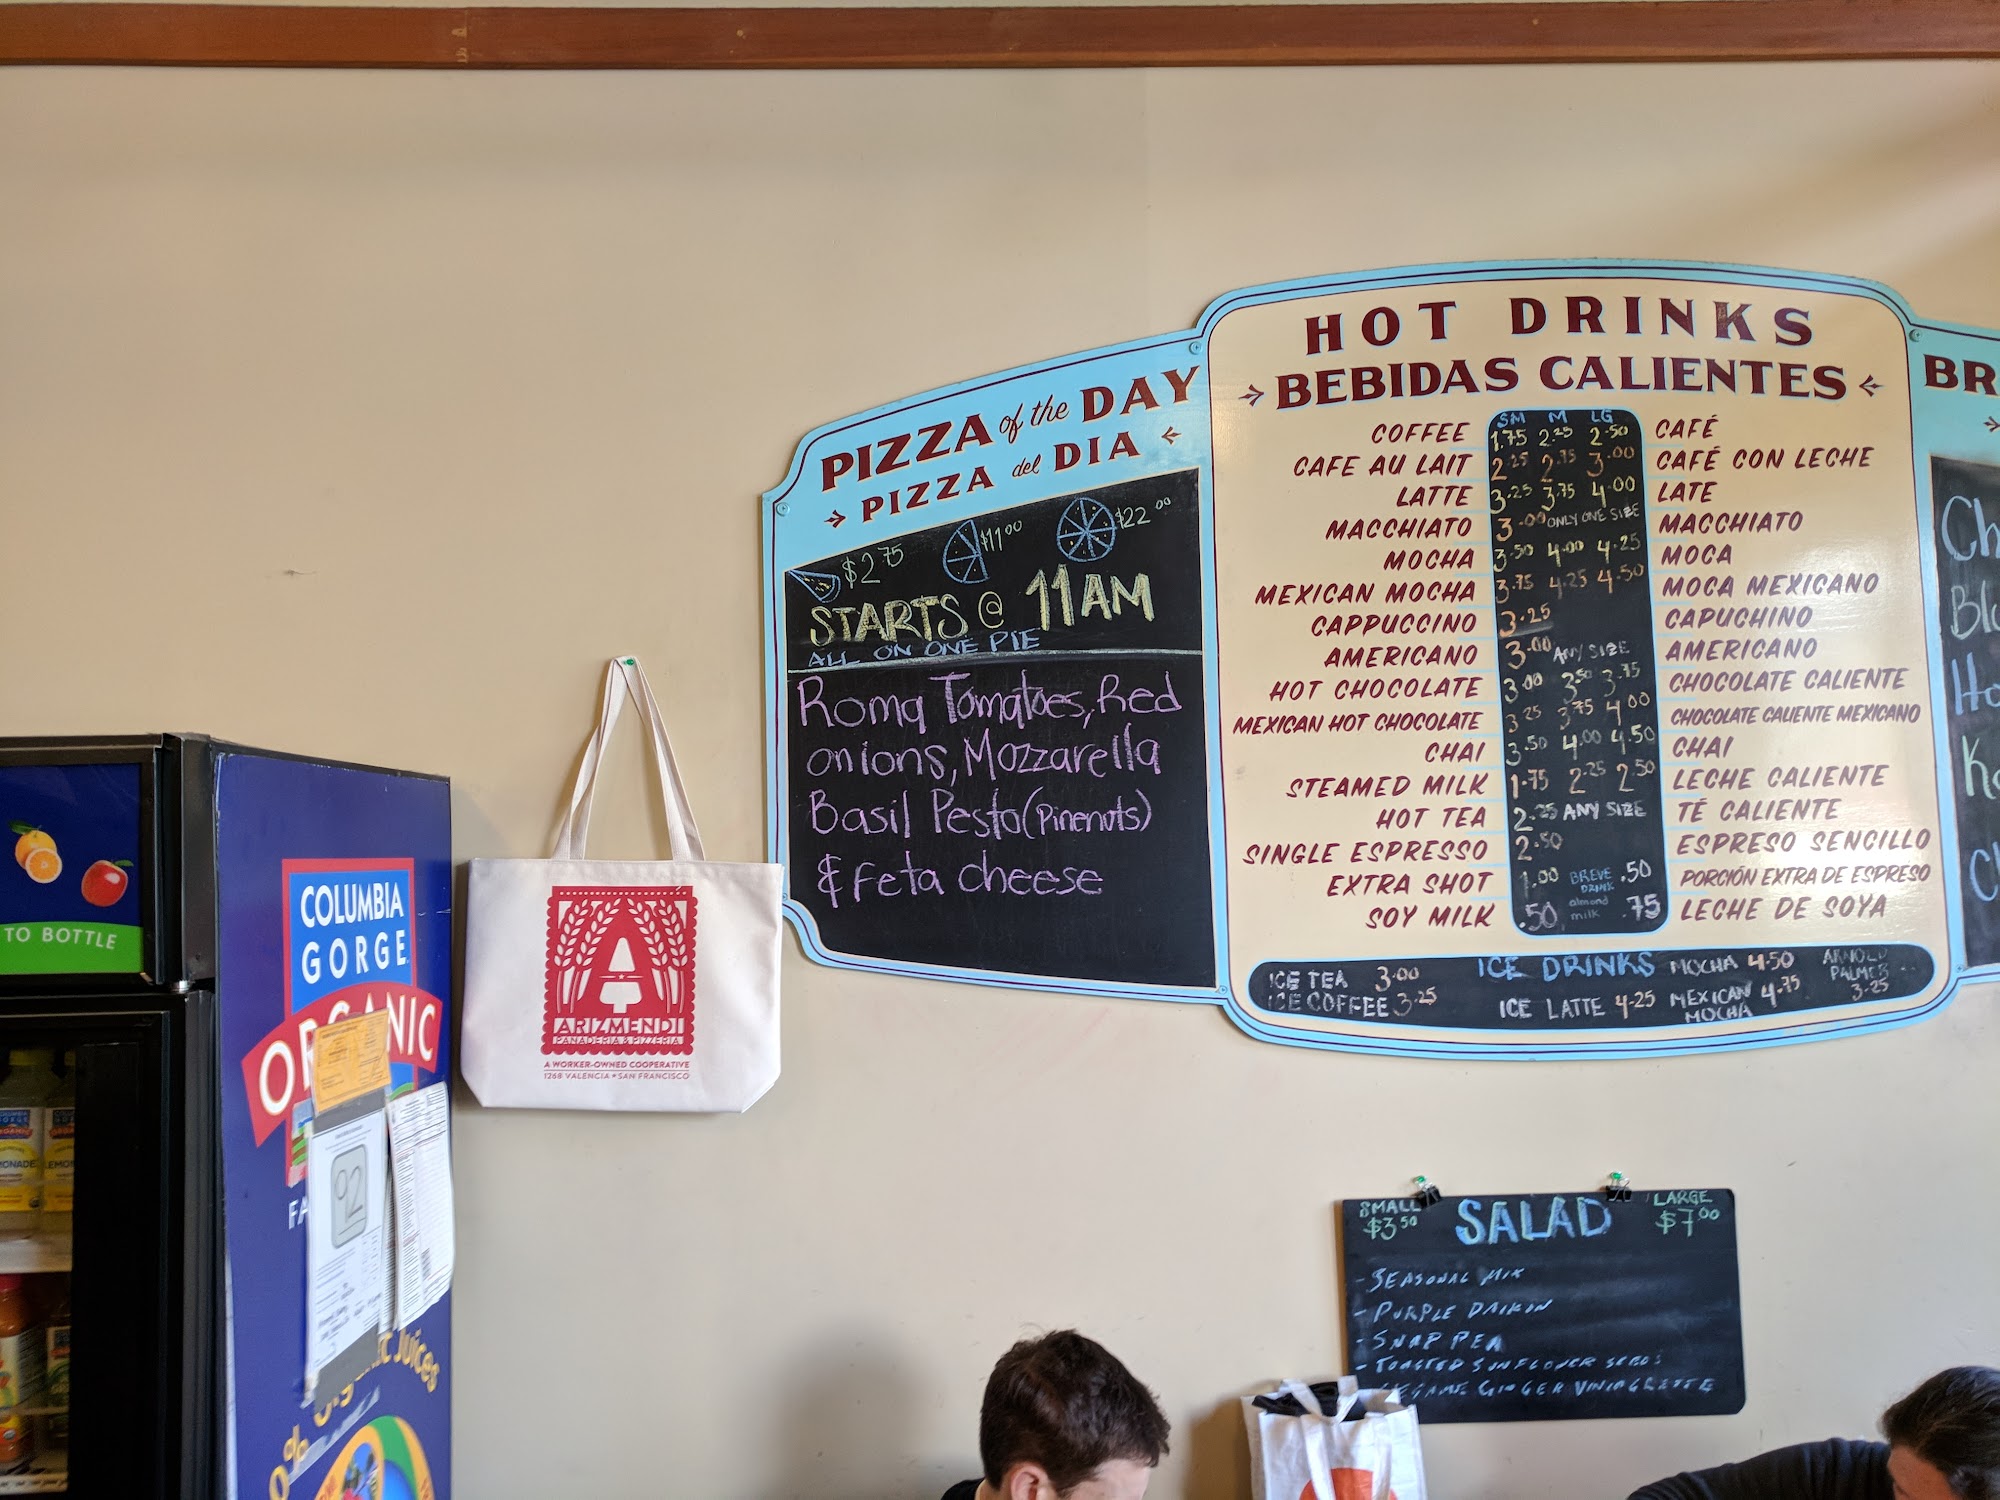 PIZZA of the DAY
PIZZA del DIA
$2.75 $11.00 $22.00
STARTS @ 11AM
ALL ON ONE PIE
Roma Tomatoes, Red
onions, Mozzarella
Basil Pesto (Pinenuts)
& Feta cheese
HOT DRINKS
BEBIDAS CALIENTES
SM M LG
COFFEE 1.75 2.25 2.50 CAFÉ
CAFE AU LAIT 2.25 2.75 3.00 CAFÉ CON LECHE
LATTE 3.25 3.75 4.00 LATE
MACCHIATO 3.00 ONLY ONE SIZE MACCHIATO
MOCHA 3.50 4.00 4.25 MOCA
MEXICAN MOCHA 3.75 4.25 4.50 MOCA MEXICANO
CAPPUCCINO 3.25 CAPUCHINO
AMERICANO 3.00 ANY SIZE AMERICANO
HOT CHOCOLATE 3.00 3.50 3.75 CHOCOLATE CALIENTE
MEXICAN HOT CHOCOLATE 3.25 3.75 4.00 CHOCOLATE CALIENTE MEXICANO
CHAI 3.50 4.00 4.50 CHAI
STEAMED MILK 1.75 2.25 2.50 LECHE CALIENTE
HOT TEA 2.25 ANY SIZE TÉ CALIENTE
SINGLE ESPRESSO 2.50 ESPRESO SENCILLO
EXTRA SHOT 1.00 BREVE DRINK .50 PORCIÓN EXTRA DE ESPRESO
SOY MILK .50 almond milk .75 LECHE DE SOYA
ICE DRINKS
ICE TEA 3.00
ICE COFFEE 3.25
ICE LATTE 4.25
MOCHA 4.50
MEXICAN MOCHA 4.75
ARNOLD PALMER 3.25
BR
Ch
Blu
Ho
TO BOTTLE
COLUMBIA
GORGE
ORGANIC
Juices
92
ARIZMENDI
PANADERIA & PIZZERIA
A WORKER-OWNED COOPERATIVE
1268 VALENCIA • SAN FRANCISCO
SMALL $3.50
SALAD
LARGE $7.00
- SEASONAL MIX
- PURPLE DAIKON
- SNAP PEA
- TOASTED SUNFLOWER SEEDS
SESAME GINGER VINIAGRETTE